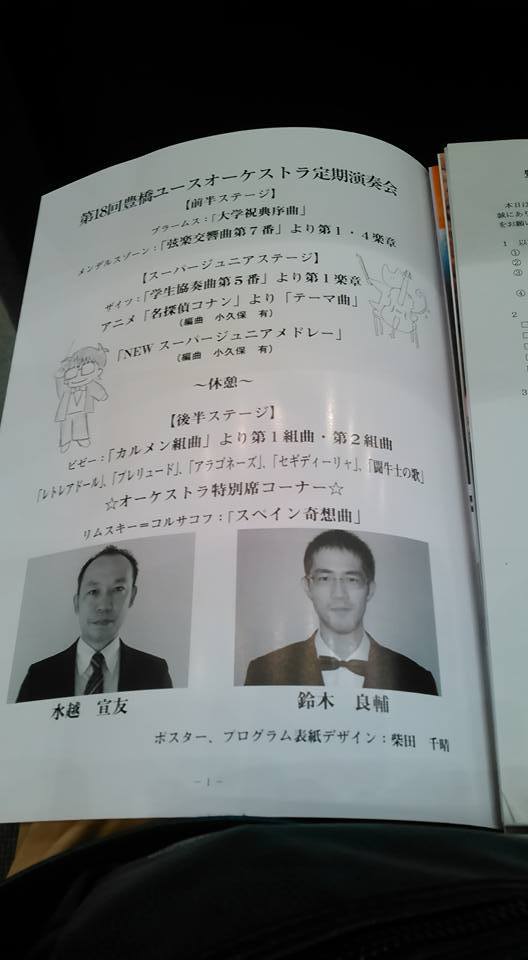 第18回豊橋ユースオーケストラ定期演奏会
【前半ステージ】
ブラームス：「大学祝典序曲」
メンデルスゾーン：「弦楽交響曲第７番」より第１・４楽章
【スーパージュニアステージ】
ザイツ：「学生協奏曲第５番」より第１楽章
アニメ「名探偵コナン」より「テーマ曲」
（編曲　小久保　有）
「NEW スーパージュニアメドレー」
（編曲　小久保　有）
～休憩～
【後半ステージ】
ビゼー：「カルメン組曲」より第１組曲・第２組曲
「レトレアドール」、「プレリュード」、「アラゴネーズ」、「セギディーリャ」、「闘牛士の歌」
☆オーケストラ特別席コーナー☆
リムスキー＝コルサコフ：「スペイン奇想曲」
水越　宣友
鈴木　良輔
ポスター、プログラム表紙デザイン：柴田　千晴
－1－
本日は
誠にあり
をお願い
1　以
①
②
③
④
2
3